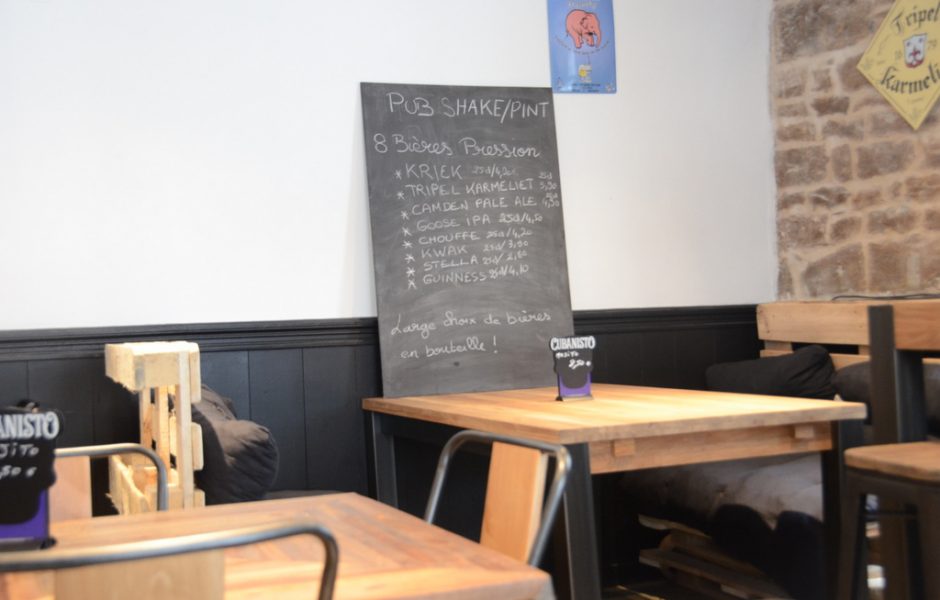 PUB SHAKE/PINT
8 Bières Pression
* KRIEK 25cl/4,20
* TRIPEL KARMELIET 25cl 5,50
* CAMDEN PALE ALE 25cl 4,50
* GOOSE IPA 25cl/4,50
* CHOUFFE 25cl/4,20
* KWAK 25cl/3,50
* STELLA 25cl/2,80
* GUINNESS 25cl/4,10
Large choix de bières
en bouteille !
Tripel
Karmeli
CUBANISTO
MOJITO
ANISTO
JITO